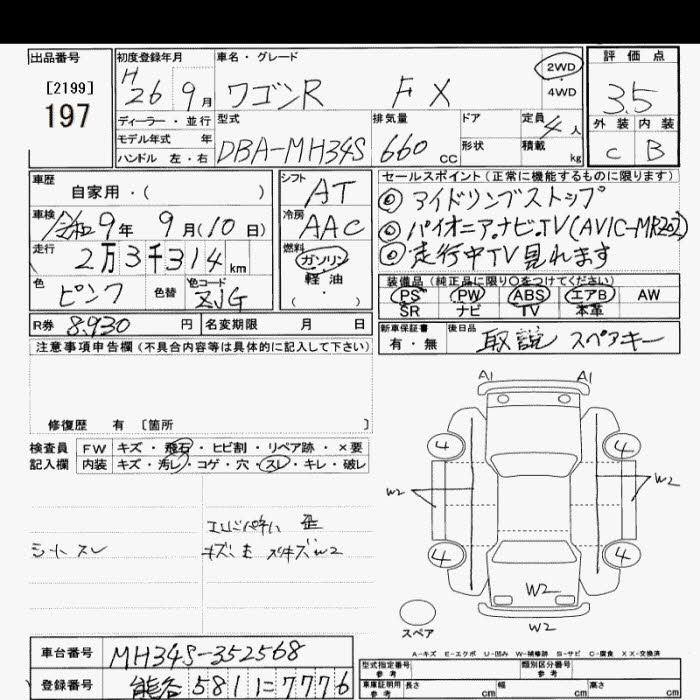 出品番号
[2199]
197
初度登録年月
H 26 9月
車名・グレード
ワゴンR FX
2WD
・
4WD
評価点
3.5
外装 内装
C B
ディーラー・並行
モデル年式 年
ハンドル 左・右
型式
DBA-MH34S
排気量
660 cc
ドア
形状
定員 4人
積載 kg
車歴
自家用・( )
車検 令和9年 9月(10日)
走行 2万3千314km
色 ピンク 色替 色コード ZJG
シフト AT
冷房 AAC
燃料
ガソリン
軽油
( ・ )
セールスポイント(正常に機能するものに限ります)
◎ アイドリングストップ
◎ パイオニアナビ.TV(AVIC-MRZ02)
◎ 走行中TV見れます
装備品(純正品に限り○をつけてください)
PS PW ABS エアB AW
SR ナビ TV 本革
R券 8,930 円 名変期限 月 日
新車保証書 有・無
後日品 取説 スペアキー
注意事項申告欄(不具合内容等は具体的に記入して下さい)
修復歴 有 〔箇所 〕
検査員記入欄
FW キズ・飛石・ヒビ割・リペア跡・×要
内装 キズ・汚レ・コゲ・穴・スレ・キレ・破レ
シート スレ
歪
キズ
W2
A1 A1
4 4
W2 W2
4 4
W2
W2
スペア
A-キズ E-エクボ U-凹み W-補修跡 S-サビ C-腐食 XX-交換済
車台番号 MH34S-352568
登録番号 熊谷 581 に 7776
型式指定番号 参考
類別区分番号 参考
車庫証明用 参考
長さ cm 幅 cm 高さ cm